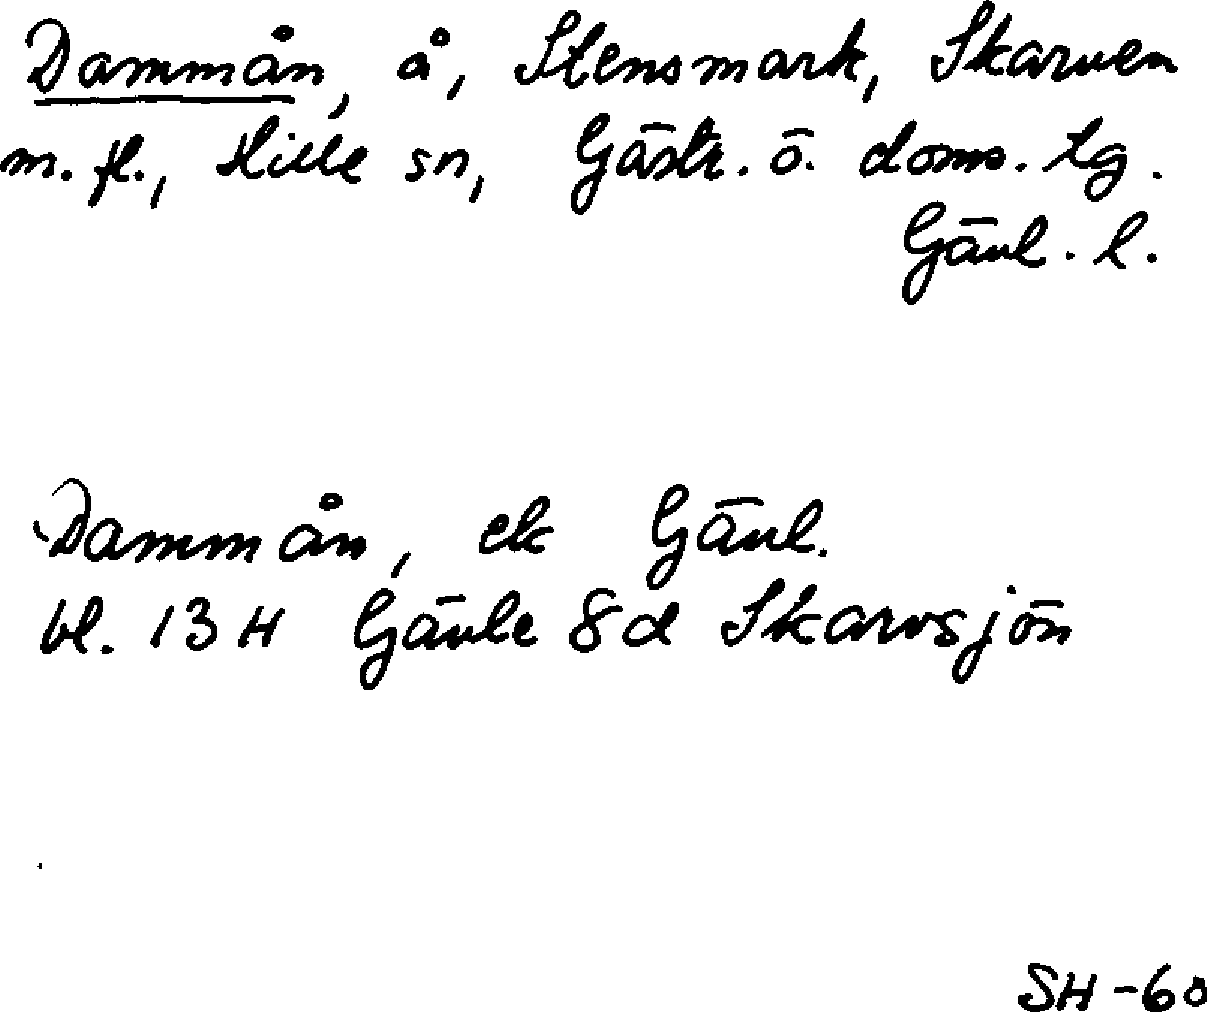 Dammån, å, Stensmark, Skarven
m. fl., Hille sn, Gästr. ö. doms. tg.
Gävl. l.
Dammån, ek Gävl.
bl. 13 H Gävle 8d Skarvsjön
SH-60